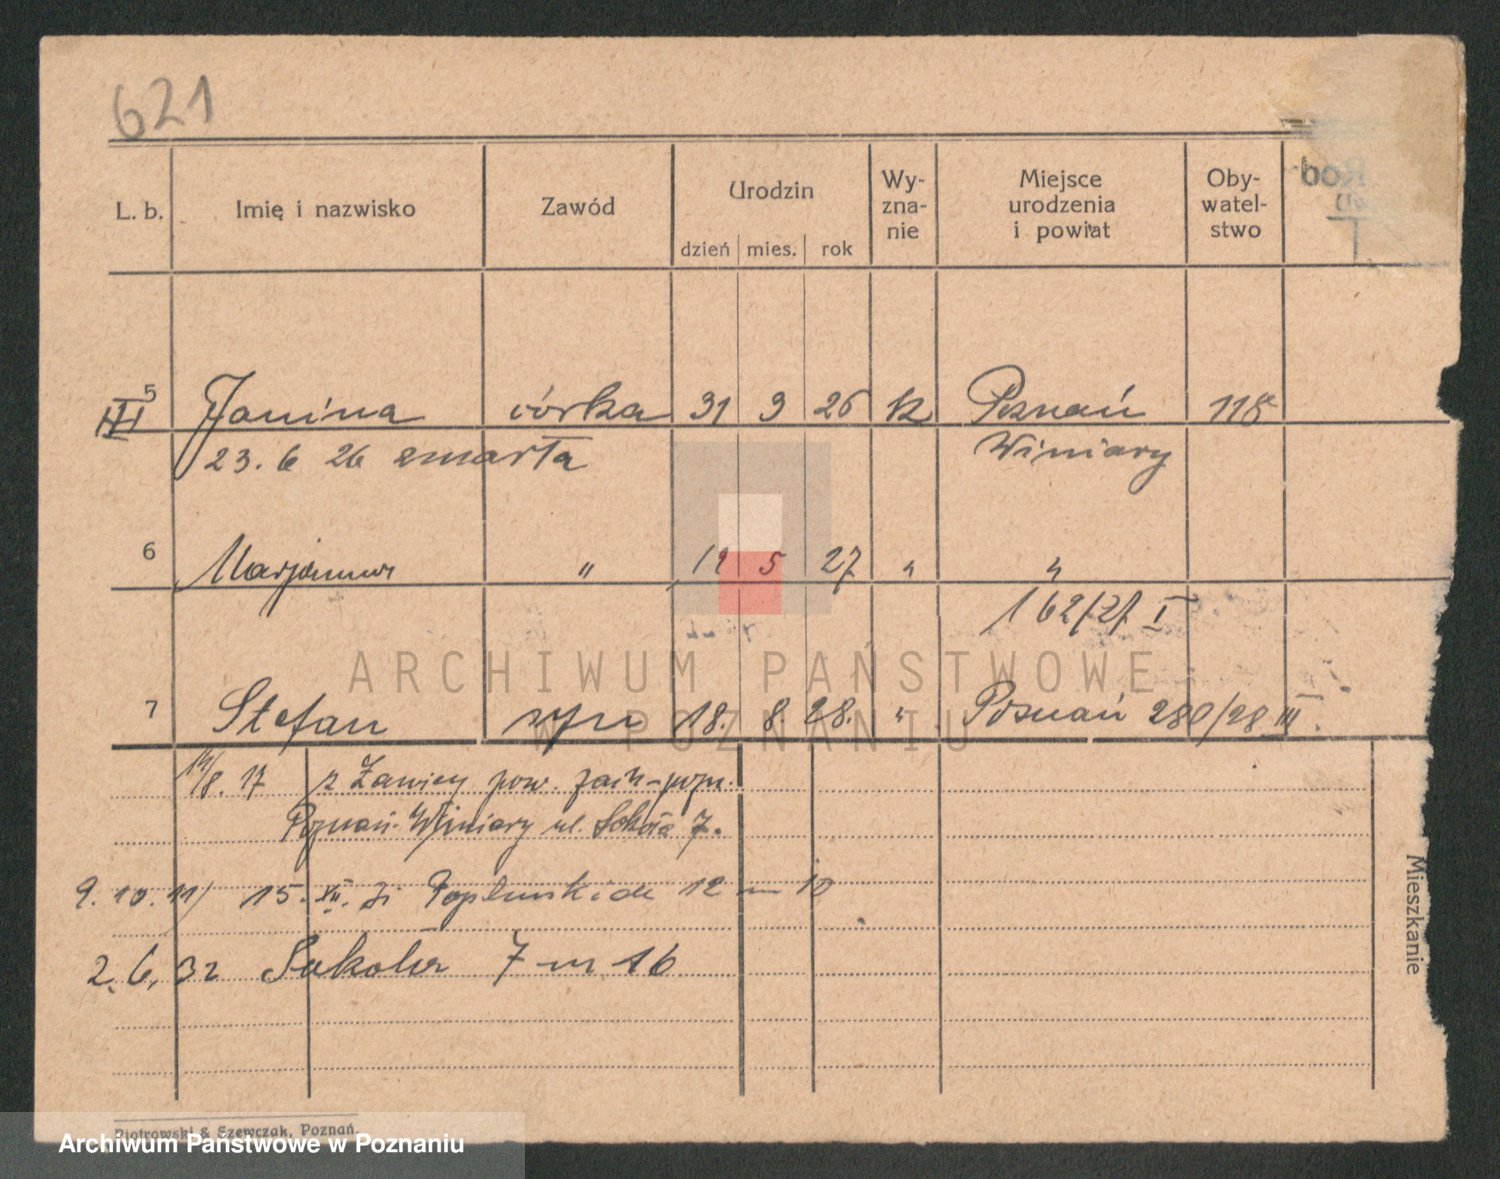 621
L. b. Imię i nazwisko Zawód Urodzin Wy-zna-nie Miejsce urodzenia i powiat Oby-watel-stwo
dzień mies. rok
5 Janina córka 31 3 26 k Poznań 118
III
23. 6 26 zmarła Winiary
6 Marjanna " 19 5 27 " "
162/27 I
7 Stefan syn 18. 8. 28. " Poznań 280/28 III
14/8. 17 z Ławicy pow. zach-pozn.
Poznań-Winiary ul. Sokoła 7.
9. 10. 11/ 15. XII. 12 m 10
2. 6. 32 Sokoła 7 m 16
Mieszkanie
Piotrowski & Szewczak, Poznań.
ARCHIWUM PAŃSTWOWE
W POZNANIU
Archiwum Państwowe w Poznaniu